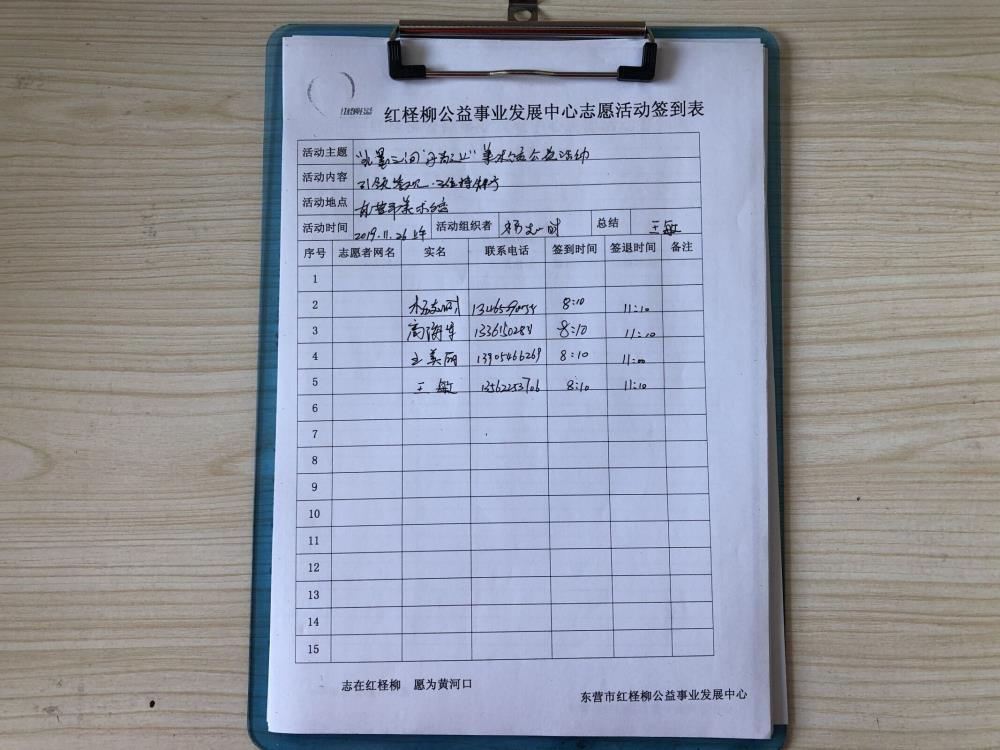 红柽柳公益事业发展中心志愿活动签到表
活动主题 美术馆公益活动
活动内容
活动地点 东营市美术馆
活动时间 2019.11.26上午 活动组织者 总结 王敏
序号 志愿者网名 实名 联系电话 签到时间 签退时间 备注
1
2 8:10 11:10
3 高海军 8:10 11:10
4 王美丽 13905466269 8:10 11:00
5 王敏 13562253706 8:10 11:10
6
7
8
9
10
11
12
13
14
15
志在红柽柳 愿为黄河口
东营市红柽柳公益事业发展中心